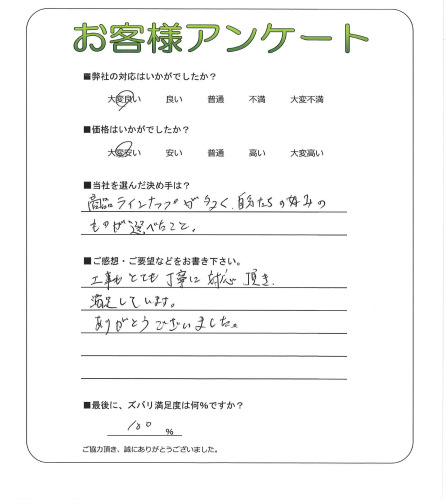 お客様アンケート
■弊社の対応はいかがでしたか？
大変良い 良い 普通 不満 大変不満
■価格はいかがでしたか？
大変安い 安い 普通 高い 大変高い
■当社を選んだ決め手は？
商品ラインナップが多く、自分たちの好みの
ものが選べたこと。
■ご感想・ご要望などをお書き下さい。
工事もとても丁寧に対応頂き、
満足しています。
ありがとうございました。
■最後に、ズバリ満足度は何％ですか？
100 %
ご協力頂き、誠にありがとうございました。